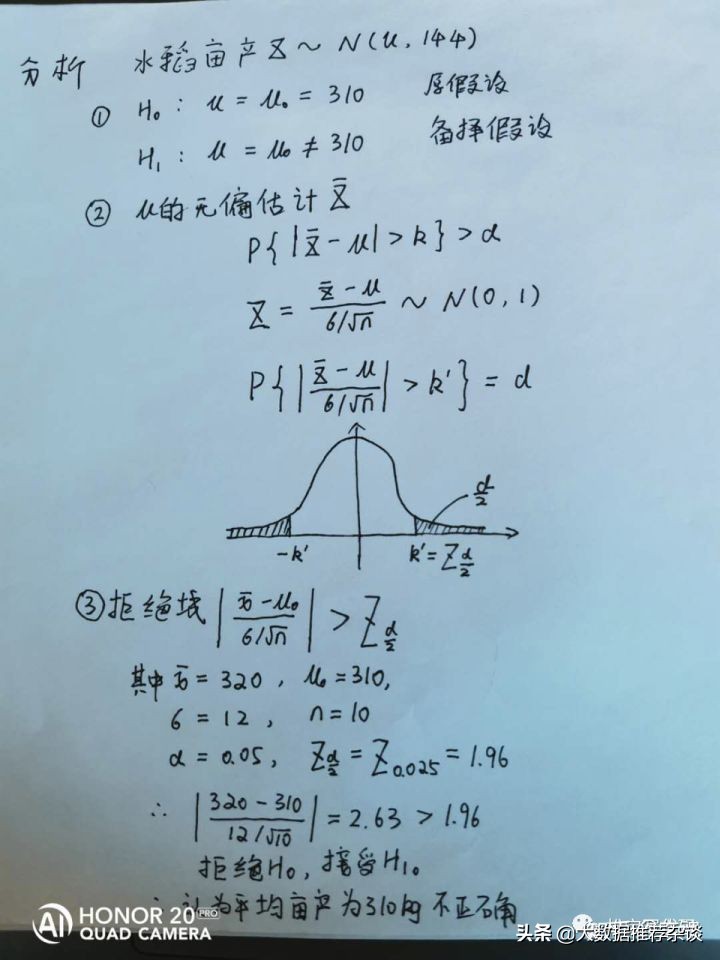 分析 水稻亩产 X ~ N(μ, 144)
① H₀ : μ = μ₀ = 310 原假设
H₁ : μ = μ₀ ≠ 310 备择假设
② μ的无偏估计 X̄
P{ |x̄ - μ| > k } > α
Z = (x̄ - μ) / (6/√n) ~ N(0, 1)
P{ |(x̄ - μ) / (6/√n)| > k' } = α
α/2
-k' k' = Z_{α/2}
③ 拒绝域 |(x̄ - μ₀) / (6/√n)| > Z_{α/2}
其中 x̄ = 320, μ₀ = 310,
6 = 12, n = 10
α = 0.05, Z_{α/2} = Z_{0.025} = 1.96
∴ |(320 - 310) / (12/√10)| = 2.63 > 1.96
拒绝H₀, 接受H₁。
∴ 认为平均亩产为310的不正确
HONOR 20 PRO
QUAD CAMERA
头条 @大数据推荐杂谈